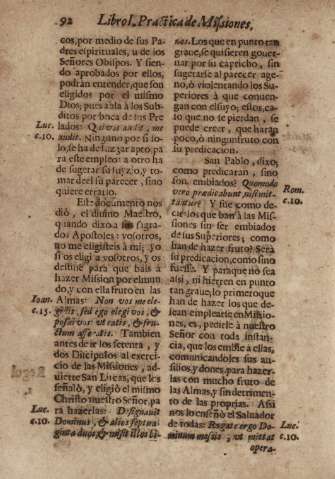 92 Libro I. Practica de Missiones,
cos, por medio de sus Pa-
dres espirituales, u de los
Señores Obispos. Y sien-
do aprobados por ellos,
podràn entender, que son
eligidos por el mismo
Dios, pues abla à los Subdi-
ditos por boca de los Pre-
Luc. lados: Qui vos audit, me
c.10. audit. Ninguno por si so-
lo, se ha de juzgar apto pa-
ra este empleo: a otro ha
de sugetar su juyzio, y to-
mar del su parecer, sino
quiere errarlo.
Este documento nos
diò, el divino Maestro,
quando dixo a sus sagra-
dos Apostoles: vosotros,
no me eligisteis à mi; yo
si os eligi a vosotros, y os
destine para que bais à
hazer Mission por el mun-
do, y con ella fruto en las
Ioan. Almas: Non vos me ele-
c.15. gistis, sed ego elegi vos, &
posui vos ut eatis, & fru-
ctum afferatis. Tambien
antes de ir los setenta, y
dos Dicipulos al exerci-
cio de las Missiones, ad-
uierte San Lucas, que les
señalò, y eligiò el mismo
Christo nuestro Señor, pa-
Luc. ra hazerlas: Designavit
c.10. Dominus, & alios septua-
ginta duos, & misit illos bi-
nos. Los que en punto tan
graue, se quisieren gouer-
nar por su capricho, sin
sugetarse al parecer age-
no, ò violentando los Su-
periores à que conuen-
gan con el suyo; estos, ca-
so que no se pierdan, se
puede creer, que haràn
poco, ò ningun fruto con
su predicacion.
San Pablo, dixo;
como predicaran, sino
son embiados? Quomodo
Rom. vero prædicabunt nisi mit-
c.10. tantur? Y fue como de-
cir: los que ban à las Mis-
siones sin ser embiados
de sus Superiores; como
han de hazer fruto? Serà
su predicacion, como sino
fuesse. Y para que no sea
assi, ni hierren en punto
tan graue, lo primero que
han de hazer los que de-
sean emplearse en Missio-
nes, es, pedirle à nuestro
Señor con toda instan-
cia, que los embie a ellas,
comunicandoles sus au-
silios, y dones, para hazer-
las con mucho fruto de
las Almas, y sin detrimen-
to de las proprias. Assi
nos lo enseñò el Salvador
de todas: Rogate ergo Do- Luc.
minum messis, ut mittat c.10.
opera-